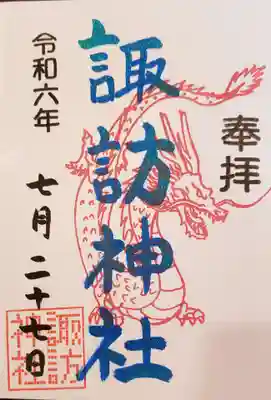 奉拝
諏訪神社
令和六年
七月二十七日
諏訪
神社